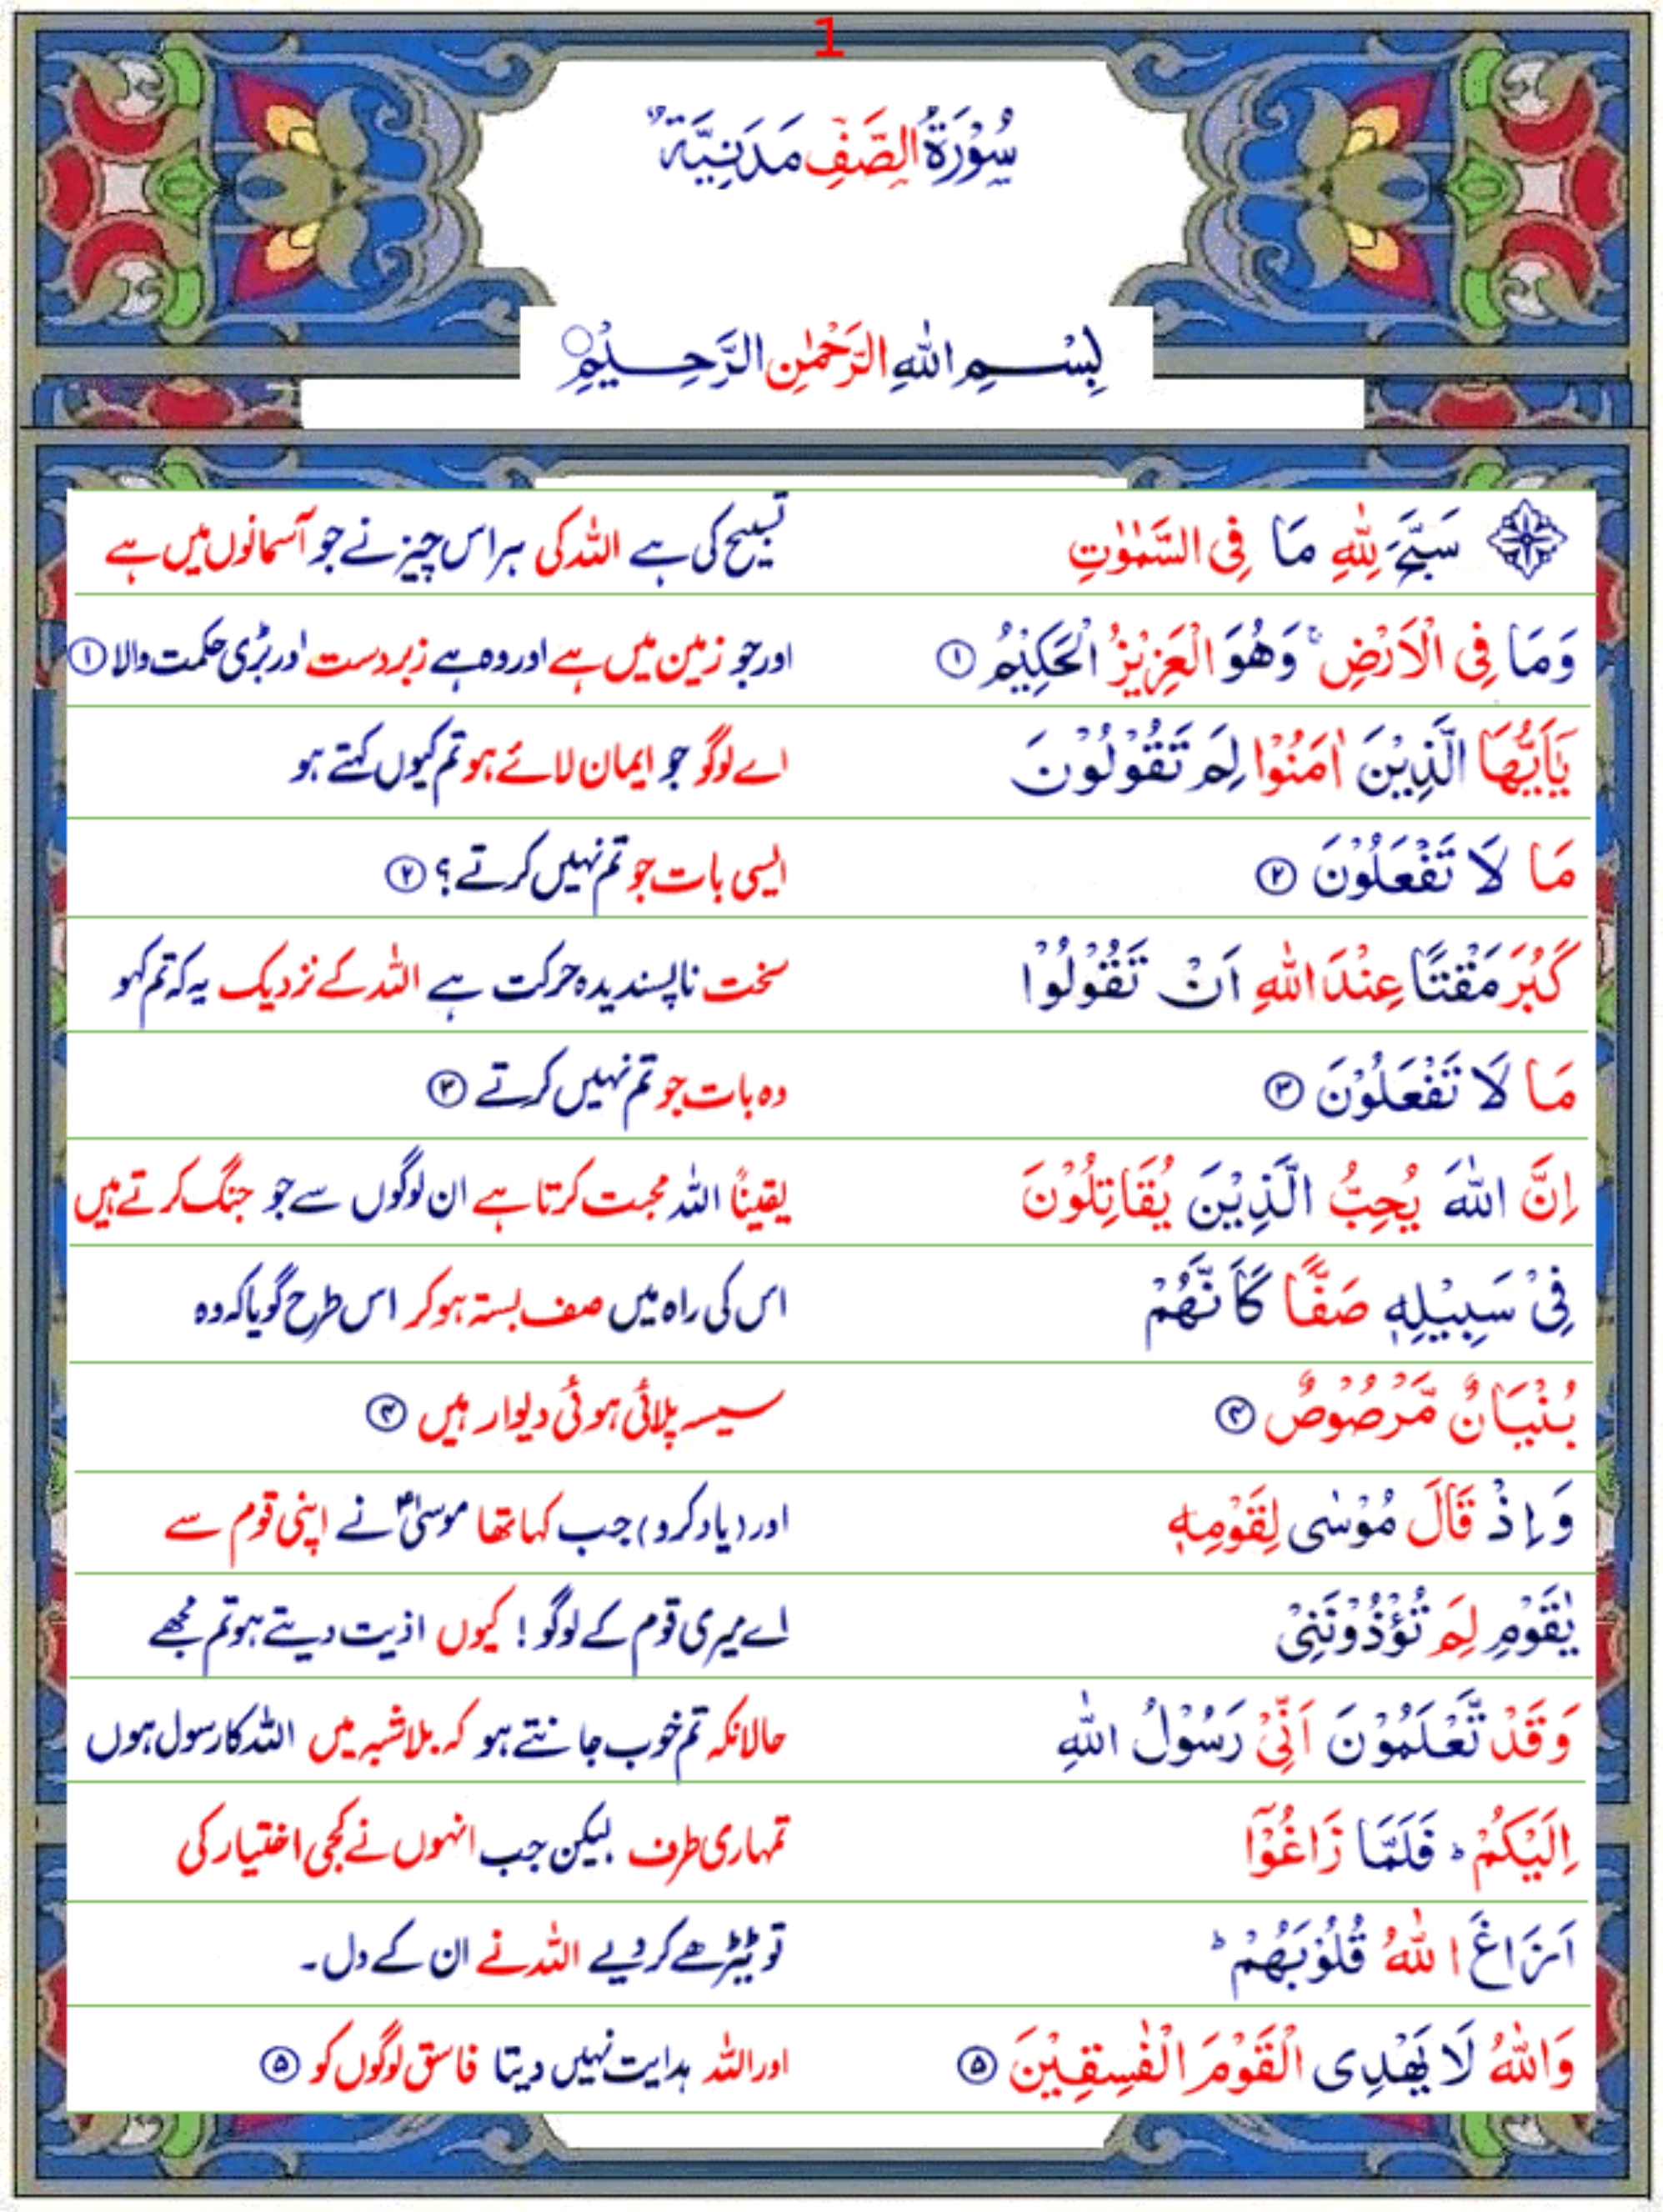 1
سُوْرَةُ الصَّفِّ مَدَنِيَّةٌ
بِسْمِ اللّٰهِ الرَّحْمٰنِ الرَّحِيْمِ
سَبَّحَ لِلّٰهِ مَا فِى السَّمٰوٰتِ تسبیح کی ہے اللہ کی ہر اس چیز نے جو آسمانوں میں ہے
وَمَا فِى الْاَرْضِ ۚ وَهُوَ الْعَزِيْزُ الْحَكِيْمُ ① اور جو زمین میں ہے اور وہ ہے زبردست اور بڑی حکمت والا ①
يٰۤاَيُّهَا الَّذِيْنَ اٰمَنُوْا لِمَ تَقُوْلُوْنَ اے لوگو جو ایمان لائے ہو تم کیوں کہتے ہو
مَا لَا تَفْعَلُوْنَ ② ایسی بات جو تم نہیں کرتے؟ ②
كَبُرَ مَقْتًا عِنْدَ اللّٰهِ اَنْ تَقُوْلُوْا سخت ناپسندیدہ حرکت ہے اللہ کے نزدیک یہ کہ تم کہو
مَا لَا تَفْعَلُوْنَ ③ وہ بات جو تم نہیں کرتے ③
اِنَّ اللّٰهَ يُحِبُّ الَّذِيْنَ يُقَاتِلُوْنَ یقیناً اللہ محبت کرتا ہے ان لوگوں سے جو جنگ کرتے ہیں
فِىْ سَبِيْلِهٖ صَفًّا كَاَنَّهُمْ اس کی راہ میں صف بستہ ہو کر اس طرح گویا کہ وہ
بُنْيَانٌ مَّرْصُوْصٌ ④ سیسہ پلائی ہوئی دیوار ہیں ④
وَاِذْ قَالَ مُوْسٰى لِقَوْمِهٖ اور (یاد کرو) جب کہا تھا موسیٰؑ نے اپنی قوم سے
يٰقَوْمِ لِمَ تُؤْذُوْنَنِىْ اے میری قوم کے لوگو! کیوں اذیت دیتے ہو تم مجھے
وَقَدْ تَّعْلَمُوْنَ اَنِّىْ رَسُوْلُ اللّٰهِ حالانکہ تم خوب جانتے ہو کہ بلاشبہ میں اللہ کا رسول ہوں
اِلَيْكُمْ ؕ فَلَمَّا زَاغُوْۤا تمہاری طرف۔ لیکن جب انہوں نے کجی اختیار کی
اَزَاغَ اللّٰهُ قُلُوْبَهُمْ ؕ تو ٹیڑھے کر دیے اللہ نے ان کے دل۔
وَاللّٰهُ لَا يَهْدِى الْقَوْمَ الْفٰسِقِيْنَ ⑤ اور اللہ ہدایت نہیں دیتا فاسق لوگوں کو ⑤